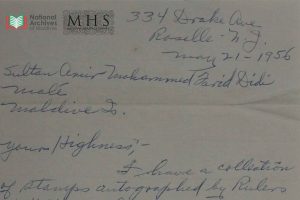 National
Archives
of Maldives
MHS
334 Drake Ave.
Roselle - N.J.
May 21 - 1956
Sultan Amir Muhammed Farid Didi
Male
Maldive Is.
Your Highness,-
I have a collection
of stamps autographed by Rulers